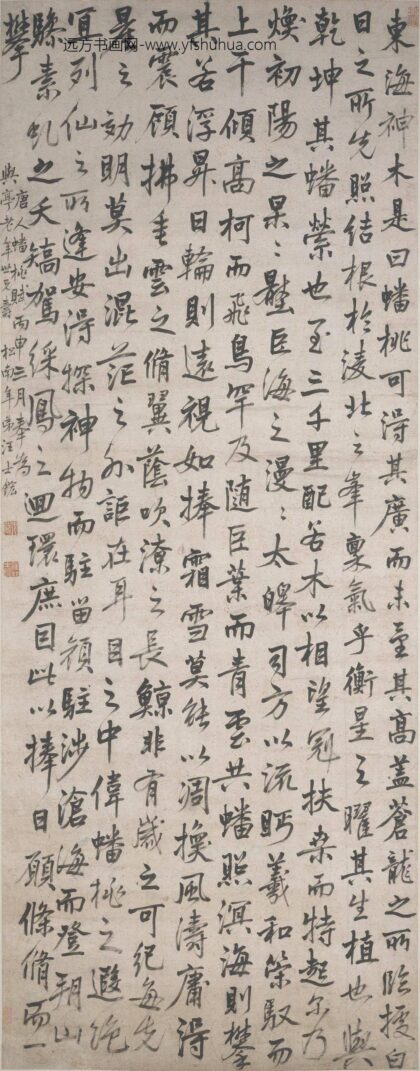 远方书画网·www.yfshuhua.com
東海神木是曰蟠桃可得其廣而未至其高蓋蒼龍之所臨援白
日之所先照結根於淩北之峯稟氣乎衡星之曜其生植也與
乾坤其蟠縈也至三千里配若木以相望冠扶桑而特起尔乃
煥初陽之杲〻壓巨海之漫〻太皞司方以流眄羲和策馭而
上干傾高柯而飛鳥罕及隨巨葉而青雲共蟠照溟海則攀
其若浮昇日輪則遠視如捧霜雪莫能以凋換風濤庸得
而震顧拂垂雲之脩翼蔭吹潦之長鯨非有歲之可紀每先
晨之効明莫出混茫之外詎在耳目之中偉蟠桃之遐絶
宜列仙之所逢安得探神物而駐留頽駐涉滄海而登朔山
驂素虬之夭矯駕綵鳳之迴環庶因此以捧日願條脩而一
攀
唐人蟠桃賦丙申三月奉爲
與亭老年世兄壽 松南年弟汪士鋐